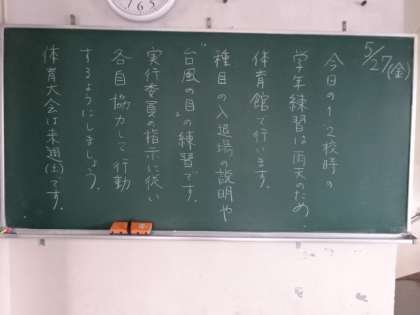 5/27(金)
今日の1、2校時の
学年練習は雨天のため
体育館で行います。
種目の入退場の説明や
"台風の目"の練習です。
実行委員の指示に従い
各自協力して行動
するようにしましょう。
体育大会は来週(土)です。